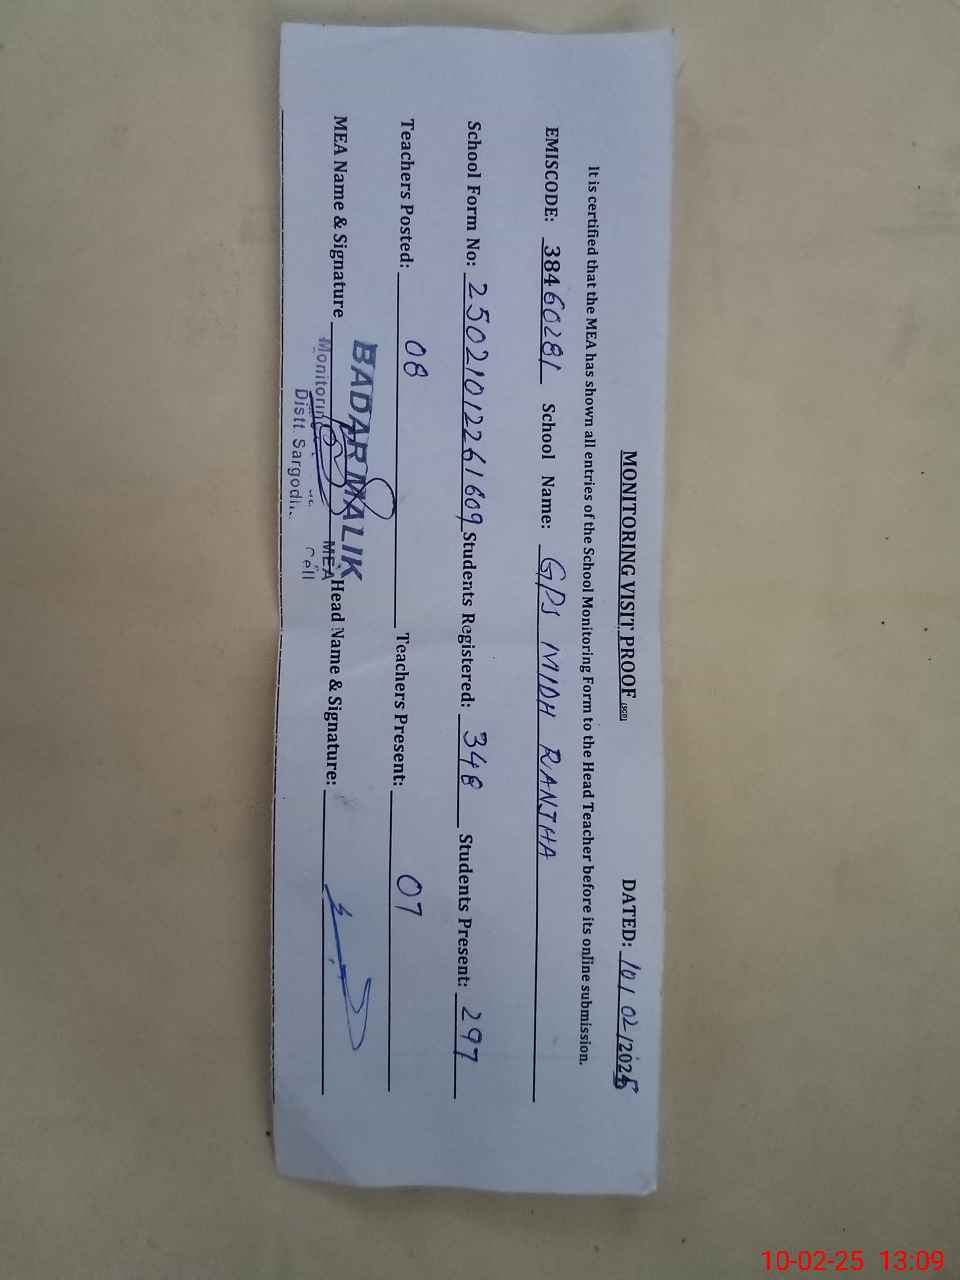 MONITORING VISIT PROOF (SGD) DATED: 10/02/2025
It is certified that the MEA has shown all entries of the School Monitoring Form to the Head Teacher before its online submission.
EMISCODE: 38460281 School Name: GPS MIDH RANJHA
School Form No: 25021012261609 Students Registered: 348 Students Present: 297
Teachers Posted: 08 Teachers Present: 07
BADAR MALIK
MEA Name & Signature Head Name & Signature:
Monitoring MEA
Distt. Sargodh Cell
10-02-25 13:09